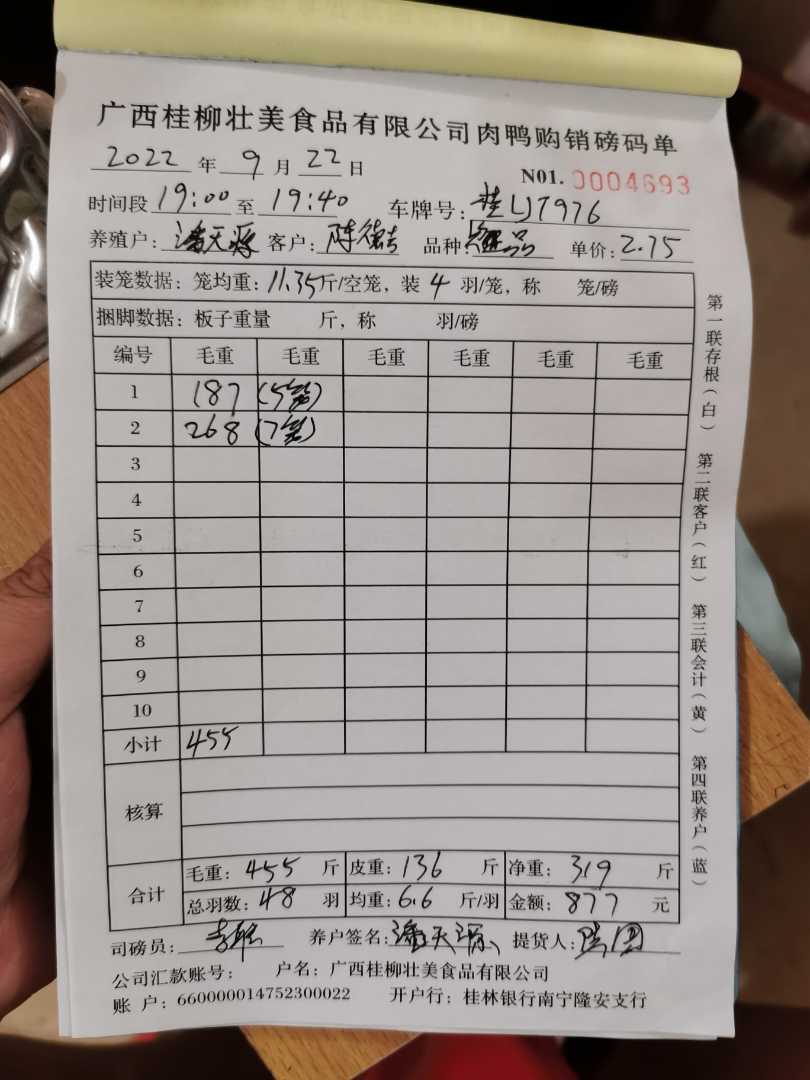 广西桂柳壮美食品有限公司肉鸭购销磅码单
2022年9月22日 N01. 0004693
时间段19:00至19:40 车牌号:桂LJ7976
养殖户:潘天源 客户:陈德 品种:品 单价:2.75
装笼数据:笼均重:11.35斤/空笼,装4羽/笼,称 笼/磅
捆脚数据:板子重量 斤,称 羽/磅
编号 毛重 毛重 毛重 毛重 毛重 毛重
1 187 (5笼)
2 268 (7笼)
3
4
5
6
7
8
9
10
小计 455
核算
合计 毛重:455斤 皮重:136斤 净重:319斤
总羽数:48羽 均重:6.6斤/羽 金额:877元
司磅员: 养户签名:潘天源 提货人:
公司汇款账号: 户名:广西桂柳壮美食品有限公司
账 户:660000014752300022 开户行:桂林银行南宁隆安支行
第一联存根(白) 第二联客户(红) 第三联会计(黄) 第四联养户(蓝)